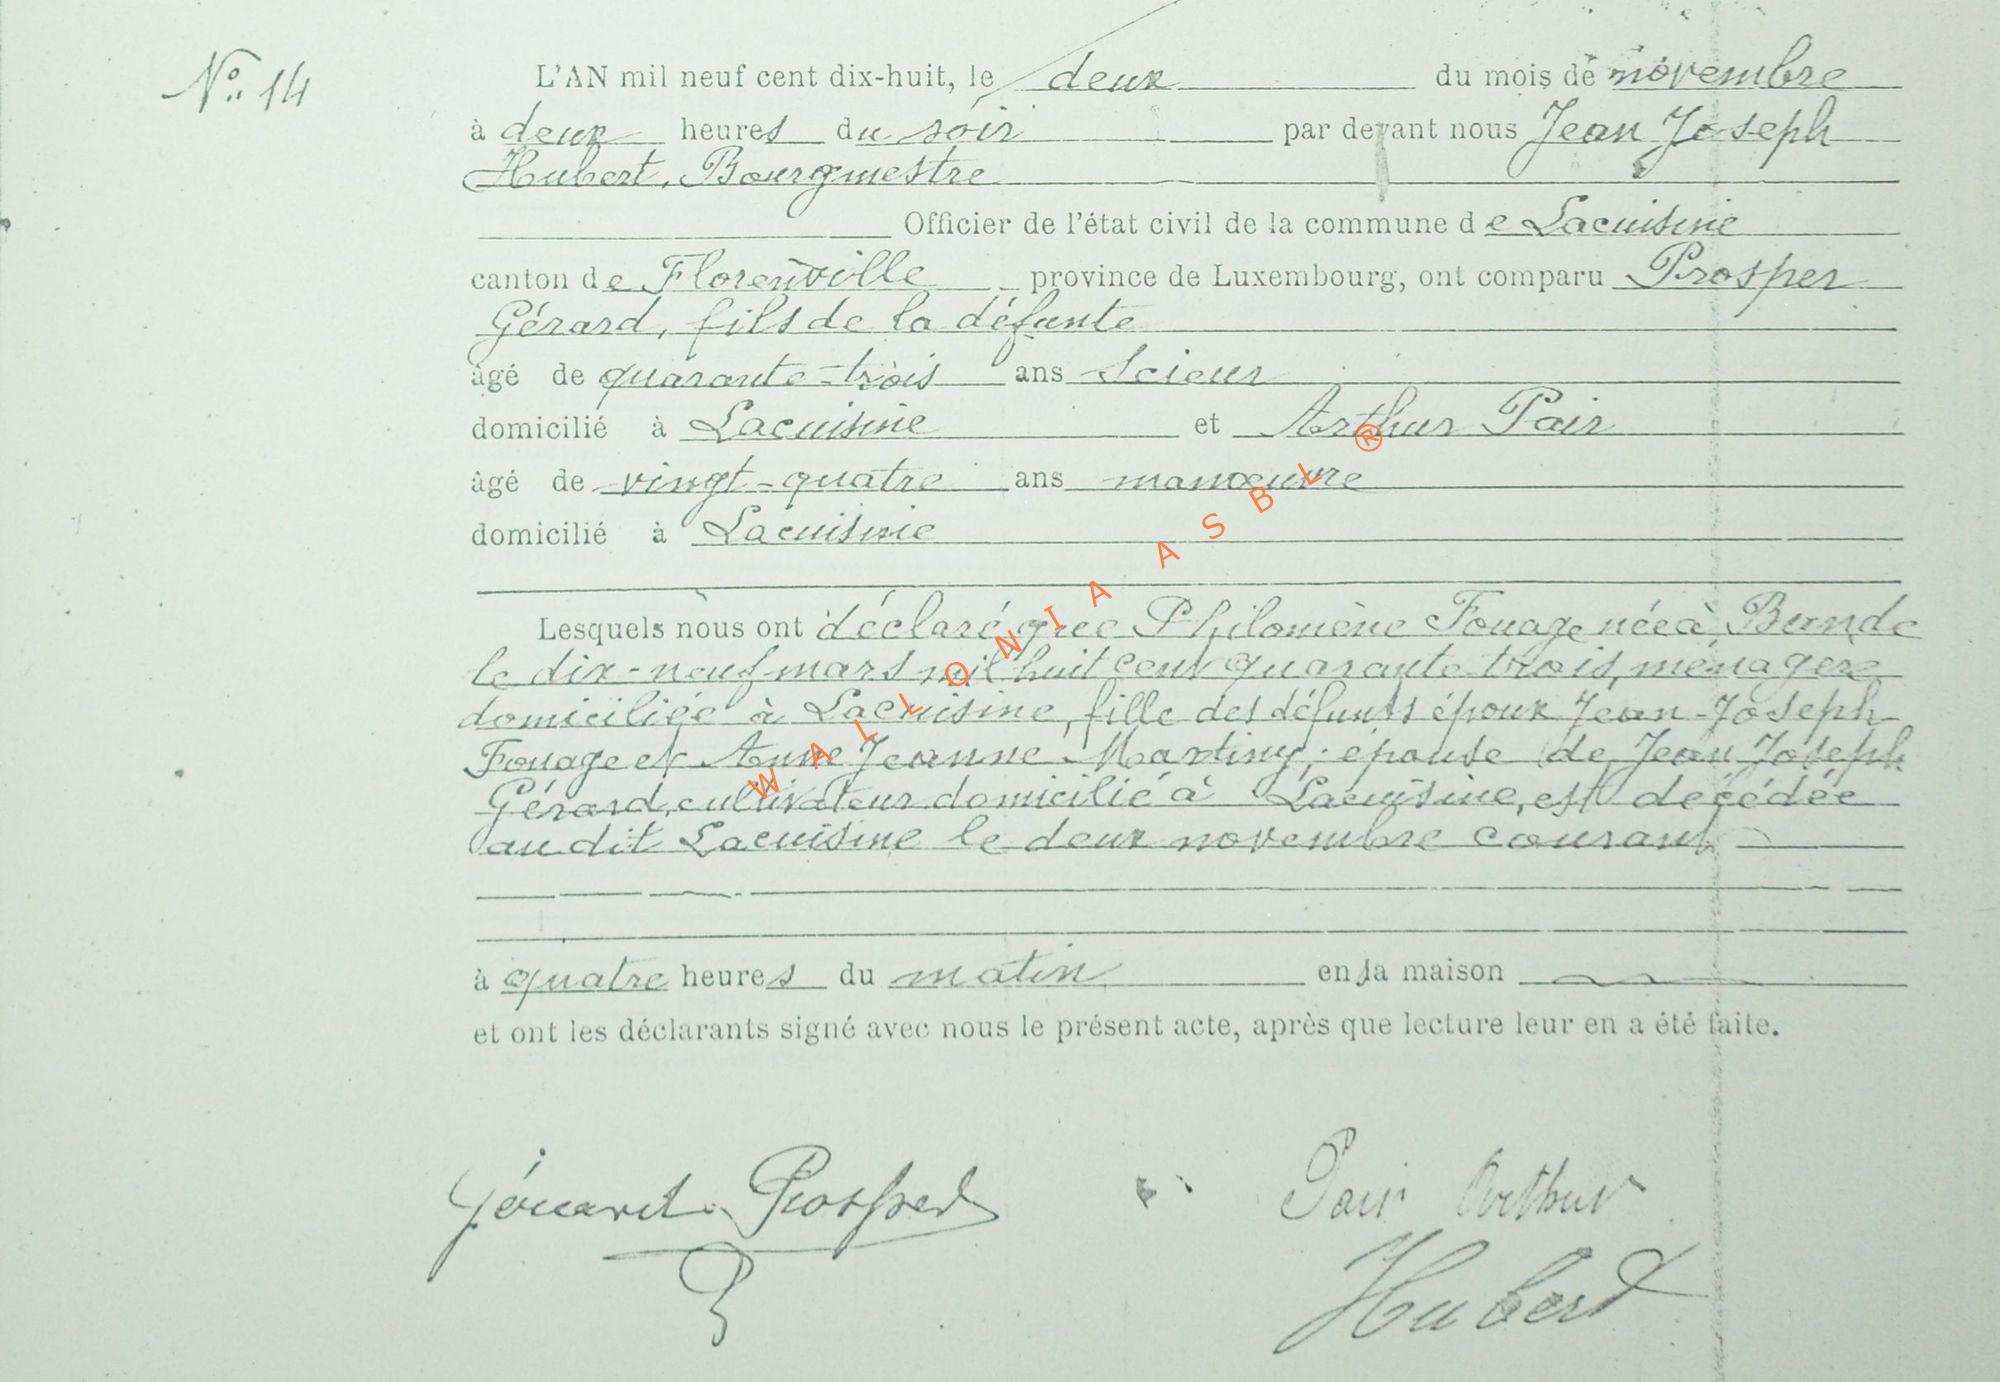 N° 14
L'AN mil neuf cent dix-huit, le deux du mois de novembre
à deux heures du soir par devant nous Jean Joseph
Hubert, Bourgmestre
Officier de l'état civil de la commune de Lacuisine
canton de Florenville province de Luxembourg, ont comparu Prosper
Gérard, fils de la défunte
âgé de quarante-trois ans Scieur
domicilié à Lacuisine et Arthur Pair
âgé de vingt-quatre ans manœuvre
domicilié à Lacuisine
Lesquels nous ont déclaré que Philomène Fouage née à
le dix-neuf mars mil huit cent quarante trois, ménagère
domiciliée à Lacuisine, fille des défunts époux Jean-Joseph
Fouage et Anne Jeanne Martiny, épouse de Jean Joseph
Gérard, cultivateur domicilié à Lacuisine, est décédée
au dit Lacuisine le deux novembre courant
à quatre heures du matin en la maison
et ont les déclarants signé avec nous le présent acte, après que lecture leur en a été faite.
Prosper
Pair Arthur
Hubert
WALLONIA ASBL ®